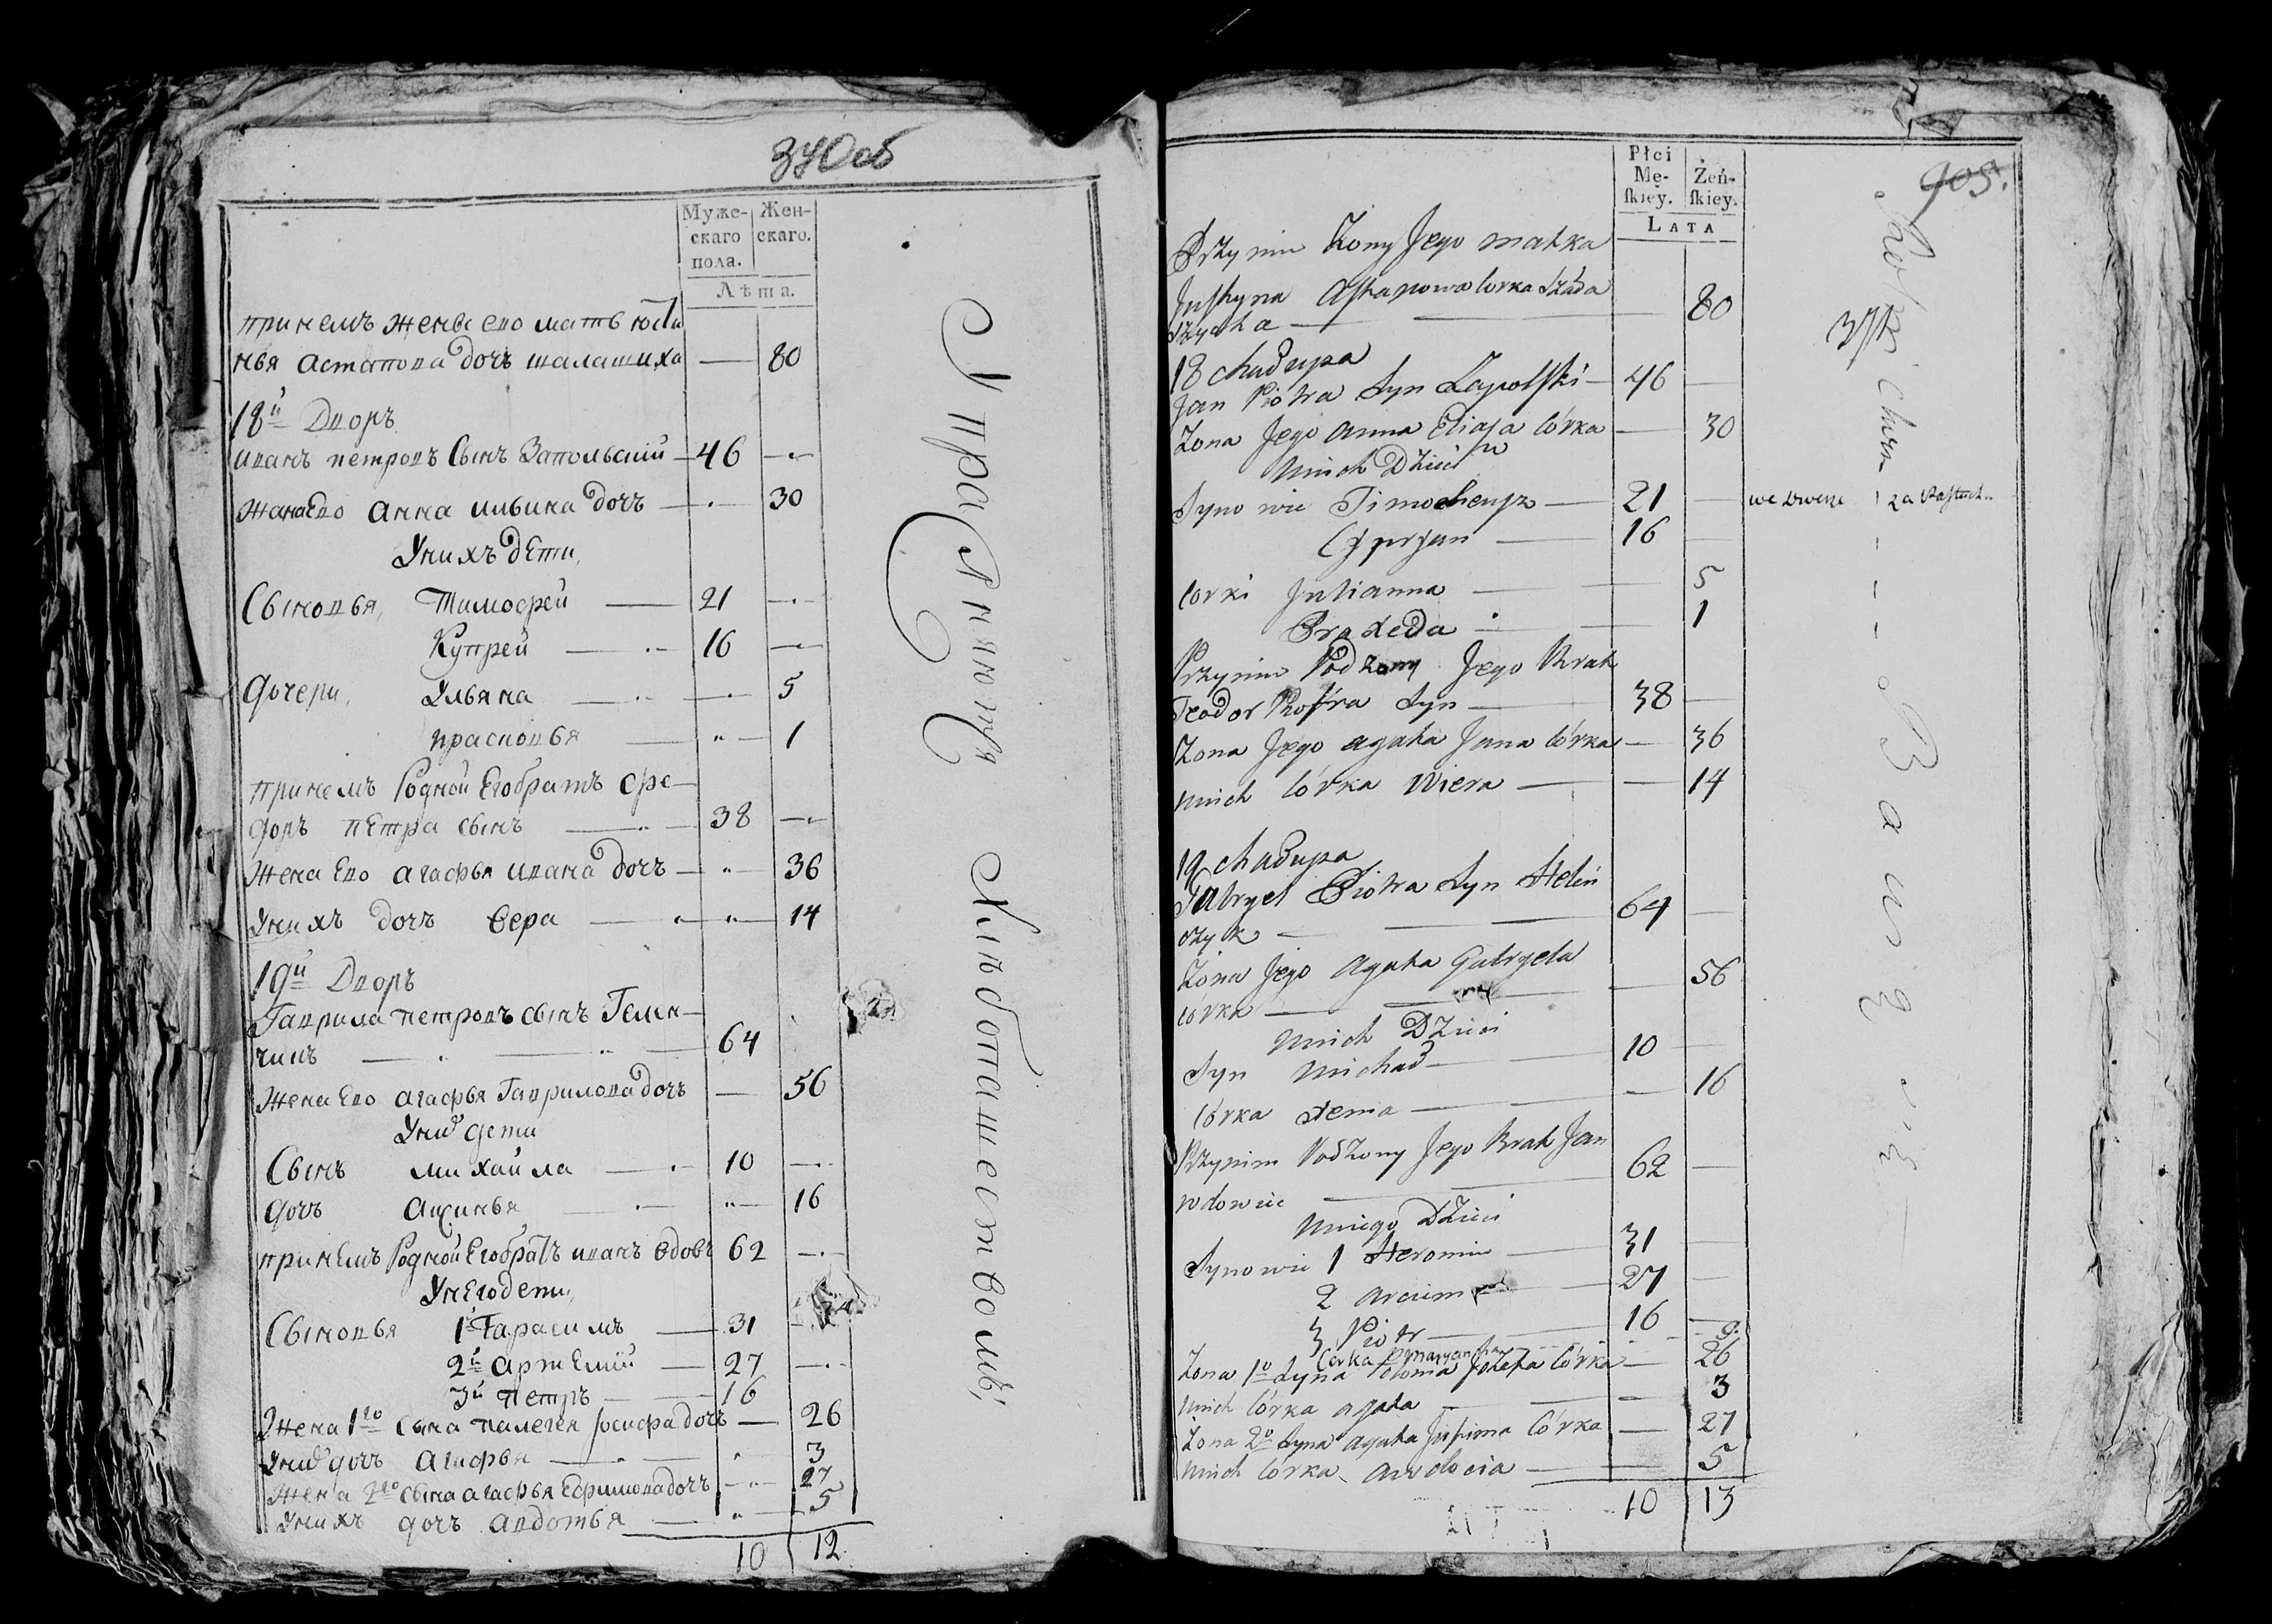 340об
Муже-
скаго
пола.
Жен-
скаго.
Лѣта.
принемъ жены ево мать Юсти
нья астапова дочъ шалашиха — 80
18й Дворъ
иванъ петровъ сынъ Запольский — 46
жана ево анна ильина дочъ — 30
Унихъ дети,
Сыновья, Тимофей — 21
Купрей — 16
дочери, Ульяна — 5
прасковья — 1
принемъ Родной Егобратъ фе-
доръ петра сынъ — 38
жена ево агафья ивана дочъ — 36
Унихъ дочъ вера — 14
19й Дворъ
Гаврила петровъ сынъ Гелен-
чикъ — 64
жена ево агафья Гаврилова дочъ — 56
Уних дети
Сынъ михайла — 10
дочъ аксинья — 16
принемъ Родной Егобратъ иванъ вдовъ 62
Унегодети,
Сыновья 1й Гарасимъ — 31
2й артемий — 27
3й петръ — 16
Жена 1го сына палегея Іосифа дочъ — 26
Уних дочъ агафья — 3
жена 2го сына агафья Ефимова дочъ — 27
Унихъ дочъ авдотья — 5
10 12
405.
Płci
Mę-
skiey.
Żeń-
skiey.
LATA
Przy nim Żony Jego matka
Justyna Astapowa Corka Szała
szycha — 80
18 chałupa
Jan Piotra Syn Zapolski — 46
Zona Jego Anna Eliasza Córka — 30
Unich Dzieci
Synowie Timocheusz — 21
Cypryan — 16
Corki Julianna — 5
Praxeda — 1
Przynim Rodzony Jego Brat
Teodor Piotra Syn — 38
Zona Jego Agata Jana Córka — 36
Unich Córka Wiera — 14
19 chałupa
Gabryel Piotra Syn Helen
czyk — 64
Żona Jego Agata Gabryela
córka — 56
Unich Dzieci
Syn Michał — 10
Córka Xenia — 16
Przynim Rodzony Jego Brat Jan
wdowiec — 62
Uniego Dzieci
Synowie 1 Heronim — 31
2 Arciem — 27
3 Piotr — 16
Córka
Zona 1o Syna Józefa Córka — 26
Unich Córka Agata — 3
Zona 2o Syna Agata Córka — 27
Unich Corka Awdocia — 5
10 13